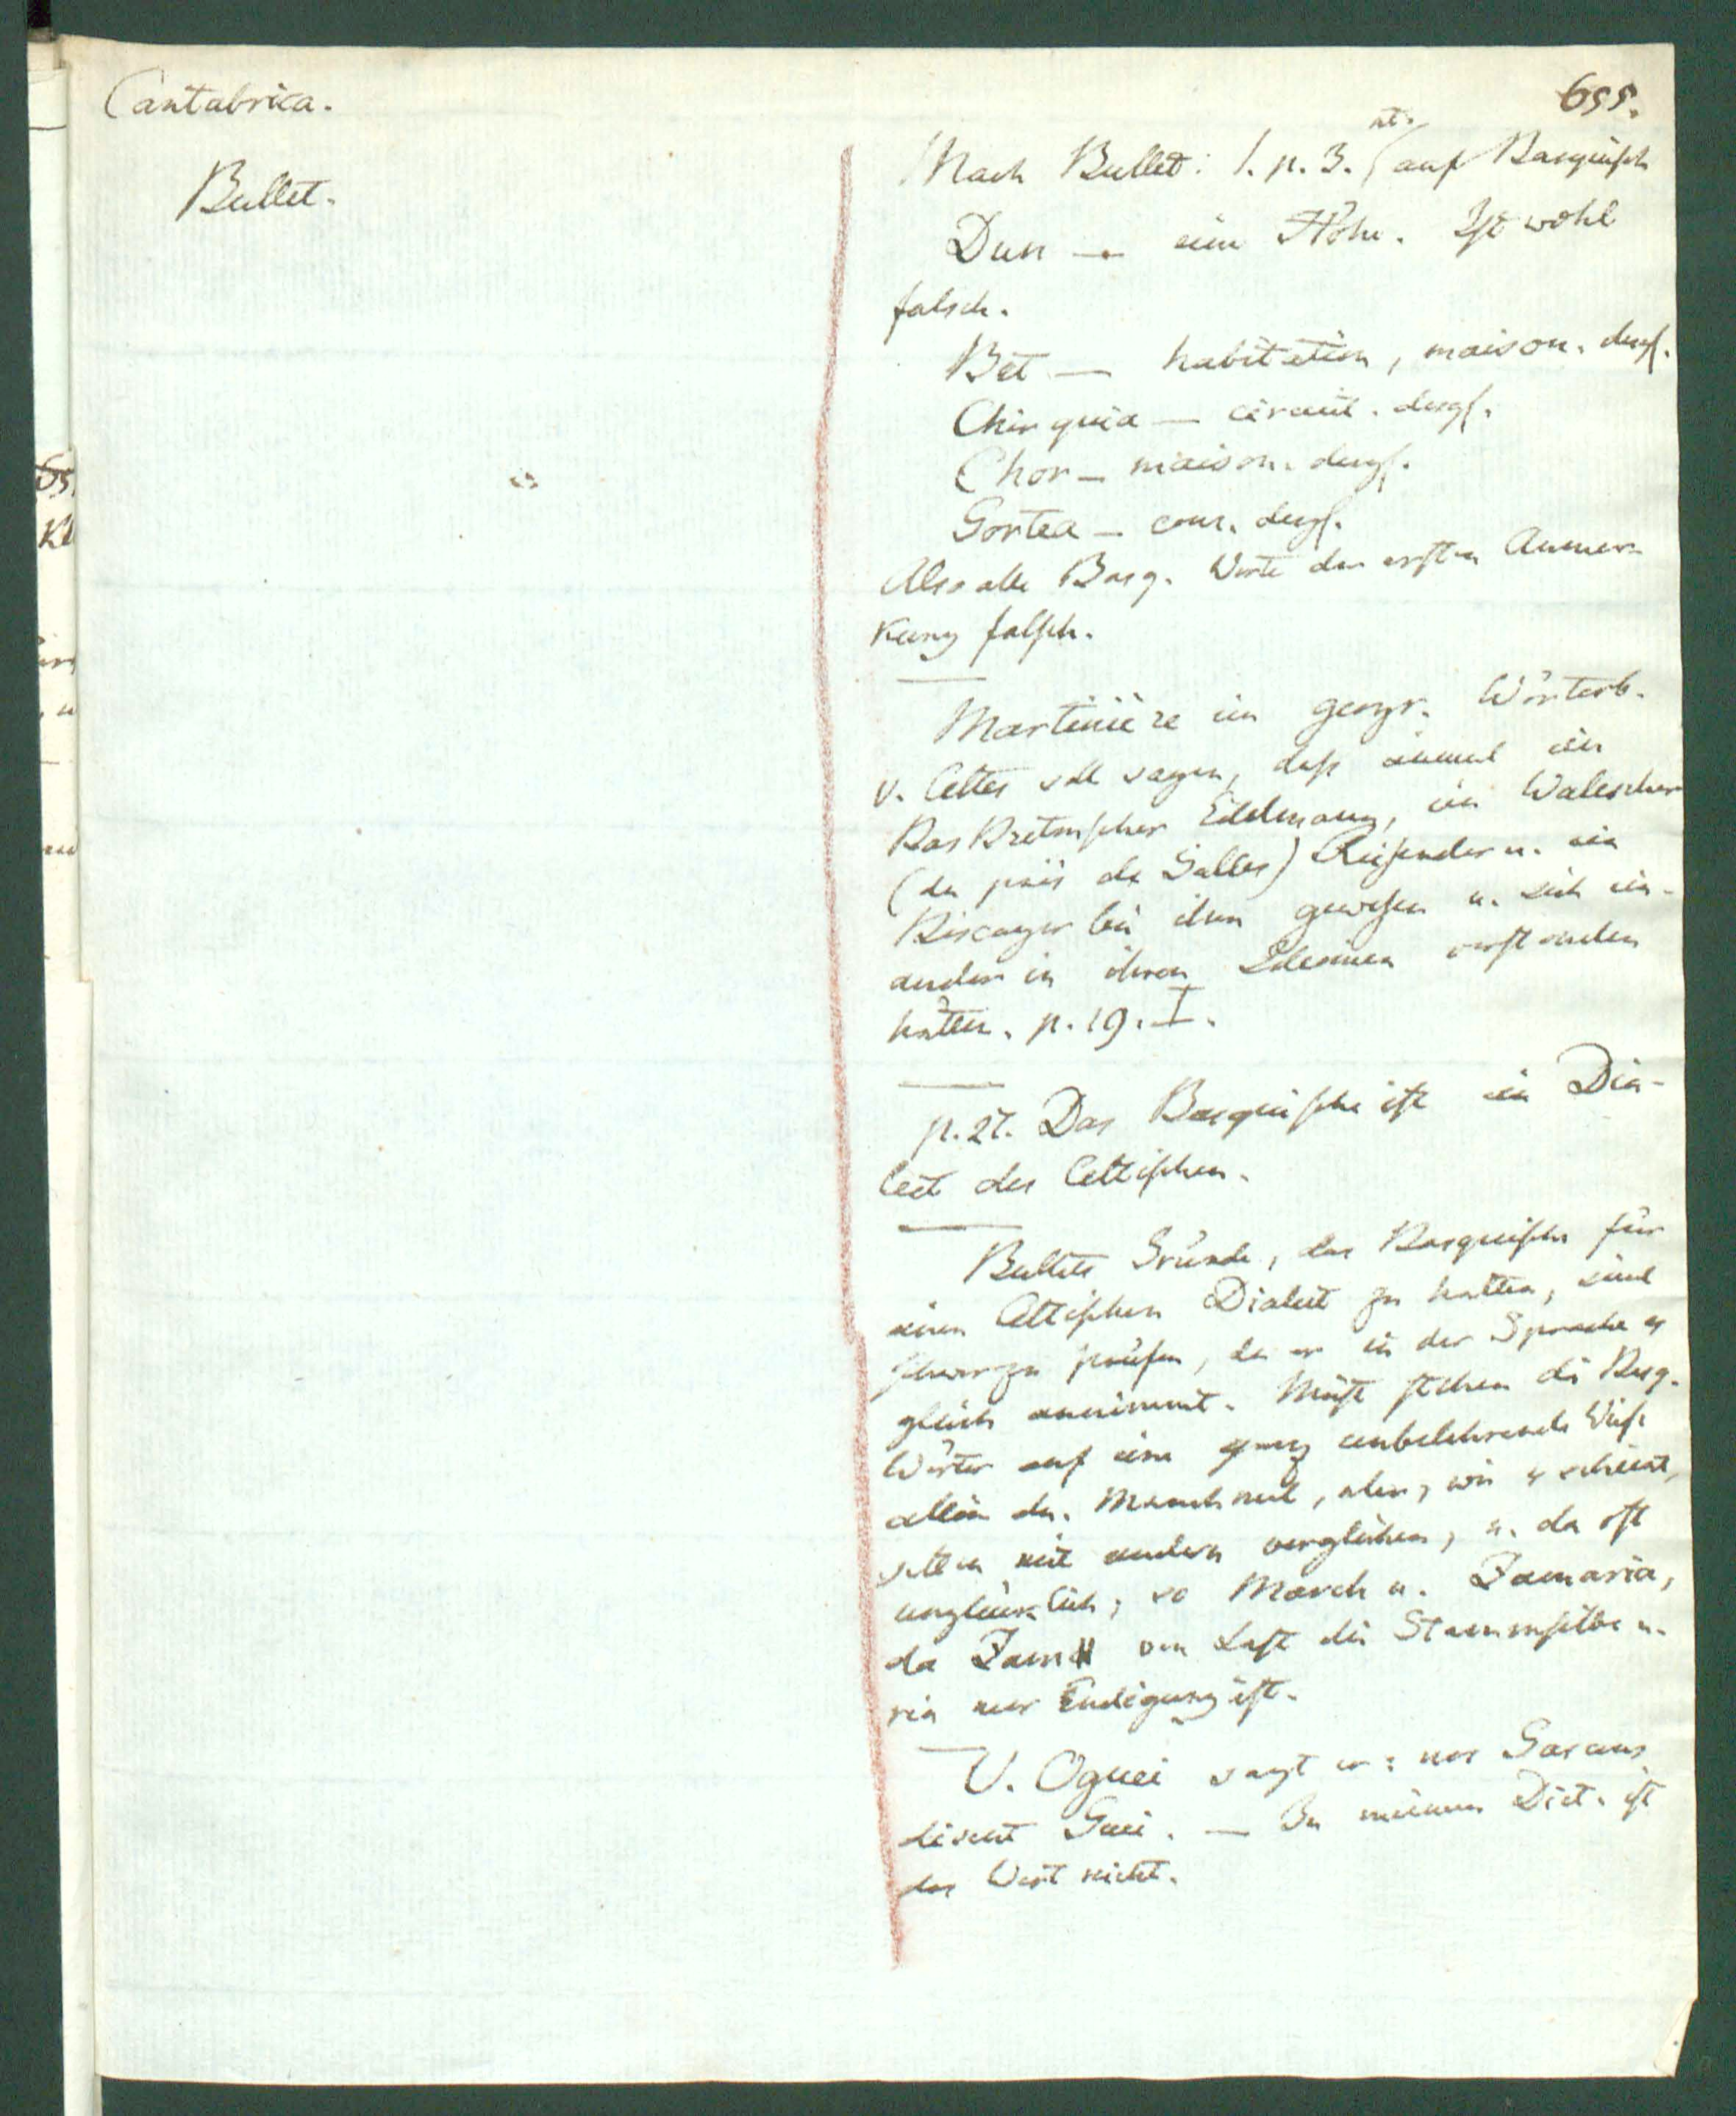 Cantabrica.
655.
Bullet.
Nach Bullet: 1. p. 3. nt. auf Basquisch
Dun — eine Höhe. Ist wohl
falsch.
Bet — habitation, maison. desgl.
Chirquia — circuit. desgl.
Chor — maison. desgl.
Gortea — cour. desgl.
Also alle Basq. Worte der ersten Anmer-
kung falsch.
Martinière im geogr. Wörterb.
v. Celtes soll sagen, dass einmal ein
BasBretonscher Edelmann, ein Walescher
(du païs de Galles) Reisender u. ein
Biscayer bei ihm gewesen u. sich ein-
ander in ihren Idiomen verstanden
hätten. p. 19. I.
p. 27. Das Basquische ist ein Dia-
lect des Celtischen.
Bullets Gründe, das Basquische für
einen Celtischen Dialect zu halten, sind
schwer zu prüfen, da er in der Sprache es
gleich annimmt. Meist stehen die Basq.
Wörter auf eine ganz unbelehrende Weise
allein da. Manchmal, aber, wie es scheint,
selten mit andern verglichen, u. da oft
unglücklich; so March u. Zamaria,
da Zama von Last die Stammsilbe u.
ria nur Endigung ist.
V. Oguei sagt er: nos Gascons
disent Guei. — In meinem Dict. ist
das Wort nicht.